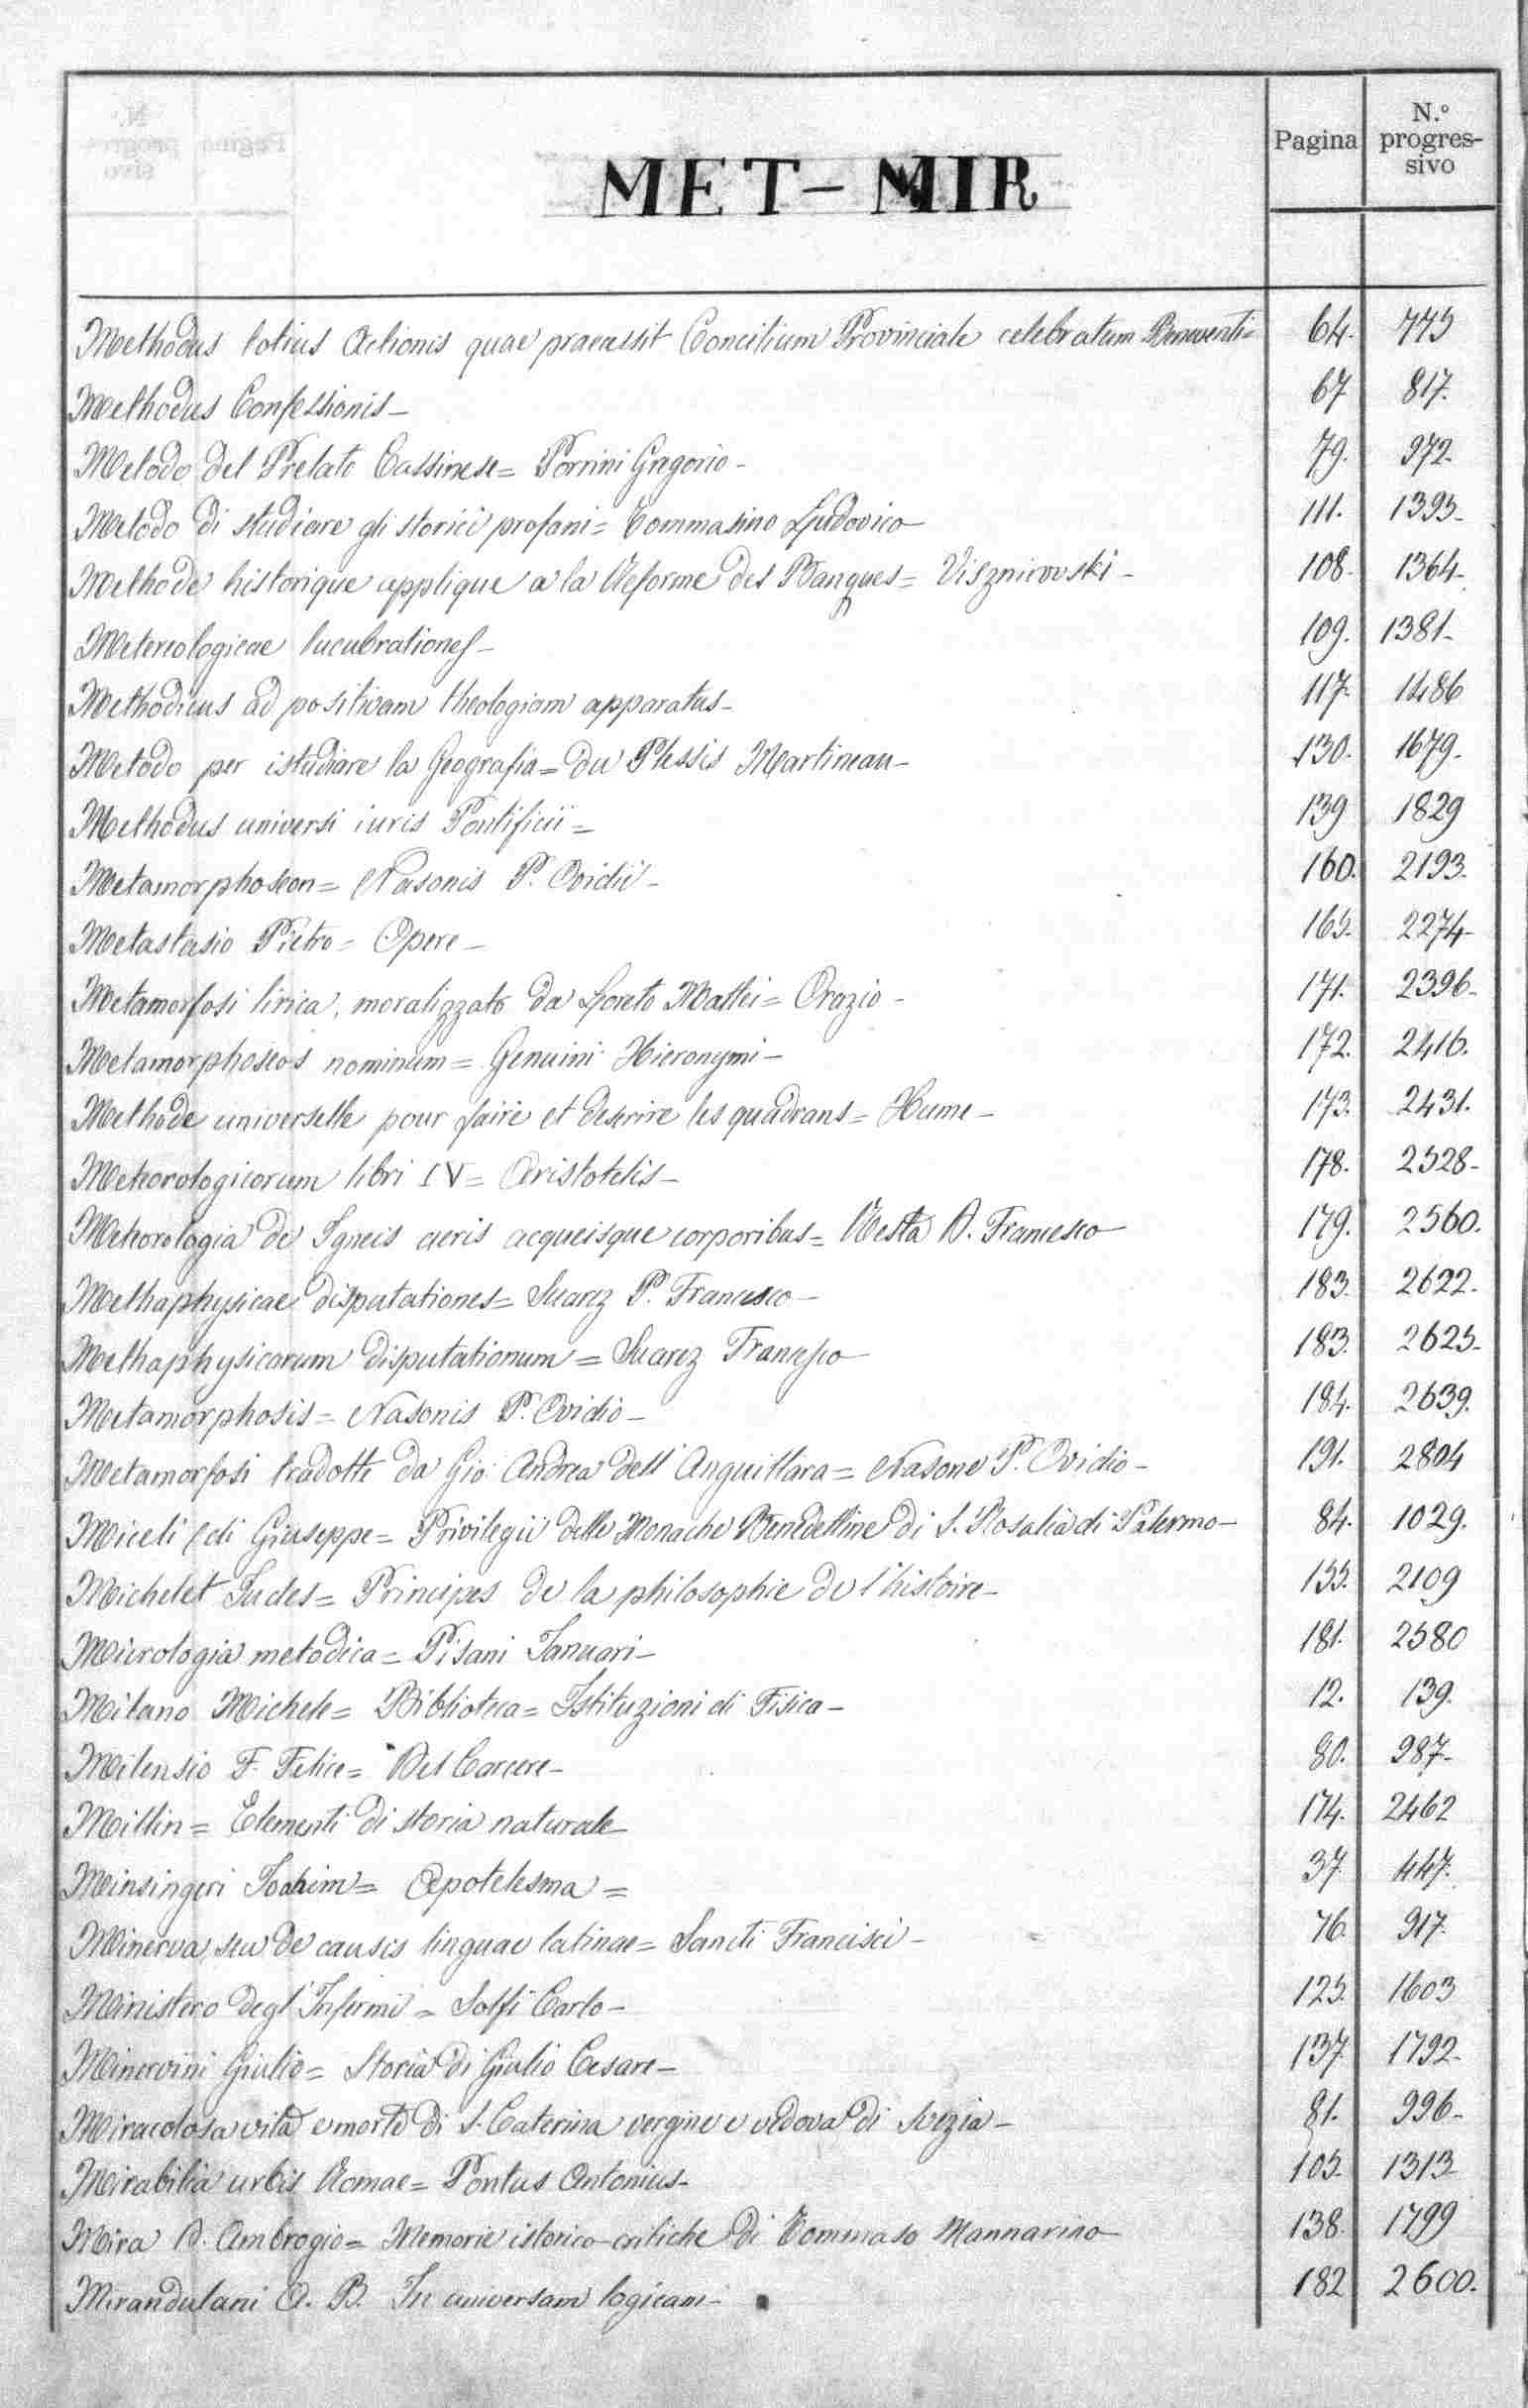 Pagina
N.º progres-
sivo
MET - MIR
Methodus totius Actionis quae praecessit Concilium Provinciale celebratum Beneventi= 64. 775
Methodus Confessionis- 67 817.
Metodo del Prelato Cassinese= Pornini Gregorio- 79. 972.
Metodo di studiare gli storici profani= Tommasino Ludovico 111. 1395-
Methode historique applique a la Reforme des Banques= Visznirovski- 108. 1364-
Metereologicae lucubrationes- 109. 1381-
Methodicus ad positivam theologiam apparatus- 117. 1486
Metodo per istudiare la Geografia= du Plessis Martineau- 130. 1679.
Methodus universi iuris Pontificii= 139 1829
Metamorphoseon= Nasonis P. Ovidii- 160. 2193.
Metastasio Pietro= Opere- 165. 2274-
Metamorfosi lirica, moralizzato da Loreto Mattei= Orazio- 171. 2396-
Metamorphoseos nominum= Genuini Hieronymi- 172. 2416.
Methode universelle pour faire et descrire les quadrans= Hume- 173. 2431.
Meteorologicorum libri IV= Aristotelis- 178. 2528-
Meteorologia de Igneis aeris acqueisque corporibus= Resta D. Francesco 179. 2560.
Methaphysicae disputationes= Suarez P. Francesco- 183. 2622.
Methaphysicarum disputationum= Suarez Francesco 183. 2625-
Metamorphosis= Nasonis P. Ovidio- 184. 2639.
Metamorfosi tradotte da Gio: Andrea dell'Anguillara= Nasone P. Ovidio- 191. 2804
Miceli (di Giuseppe= Privilegii delle Monache Benedettine di S. Rosalia di Palermo- 84. 1029.
Michelet Jules= Principes de la philosophie de l'histoire- 155. 2109
Micrologia metodica= Pisani Januari- 181. 2580
Milano Michele= Biblioteca= Istituzioni di Fisica- 12. 139.
Milensio F. Felice= Del Carcere- 80. 987-
Millin= Elementi di storia naturale 174. 2462
Minsingeri Joahim= Apotelesma= 37. 447.
Minerva, seu de causis linguae latinae= Sancti Francisci- 76. 917.
Ministero degl'Infermi= Solfi Carlo- 125. 1603
Minervini Giulio= Storia di Giulio Cesare- 137. 1792-
Miracolosa vita e morte di S. Caterina vergine e vedova di Svezia- 81. 996-
Mirabilia urbis Romae= Pontus Antonius- 105- 1313-
Mira D. Ambrogio= Memorie istorico-critiche di Tommaso Mannarino 138. 1799
Mirandulani A. B. In universam logicam- 182 2600.